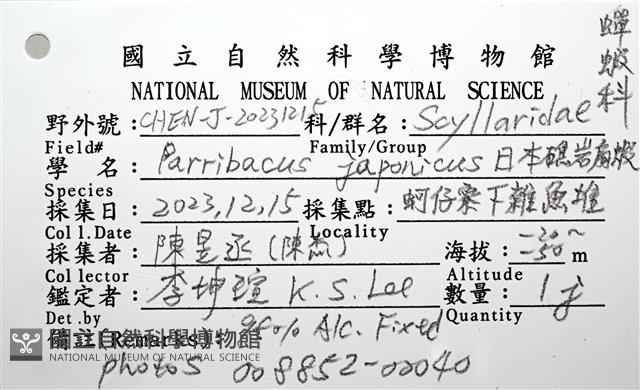 蟬蝦科
國立自然科學博物館
NATIONAL MUSEUM OF NATURAL SCIENCE
野外號:CHEN-J-20231215 科/群名:Scyllaridae
Field# Family/Group
學 名:Parribacus japonicus 日本礁岩扇蝦
Species
採集日:2023,12,15 採集點:蚵仔寮下雜魚堆
Coll.Date Locality
採集者:陳昱丞(陳杰) 海拔:-20~-50 m
Collector Altitude
鑑定者:李坤瑄 K.S.Lee 數量:1
Det.by Quantity
備註(Remarks): 95% Alc. Fixed
國立自然科學博物館
NATIONAL MUSEUM OF NATURAL SCIENCE
photos 008852-00040